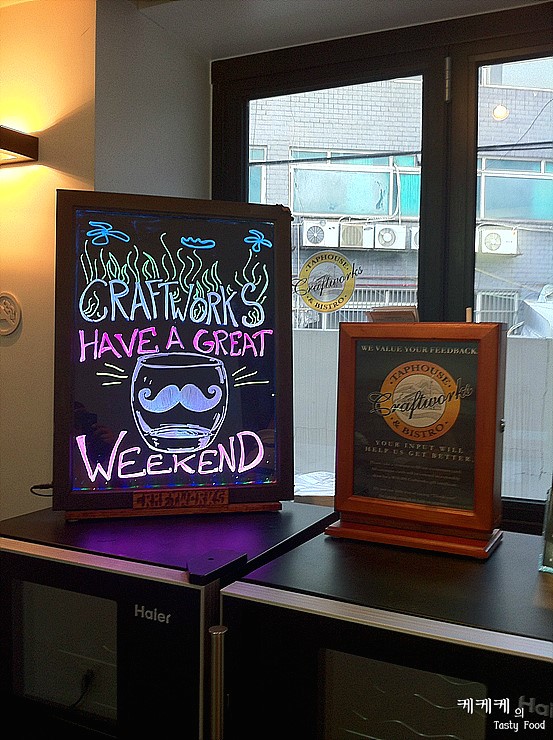 CRAFTWORKS
HAVE A GREAT
WEEKEND
CRAFTWORKS
TAPHOUSE
Craftworks
& BISTRO
WE VALUE YOUR FEEDBACK
TAPHOUSE
Craftworks
& BISTRO
YOUR INPUT WILL
HELP US GET BETTER.
Haier
케케케의
Tasty Food